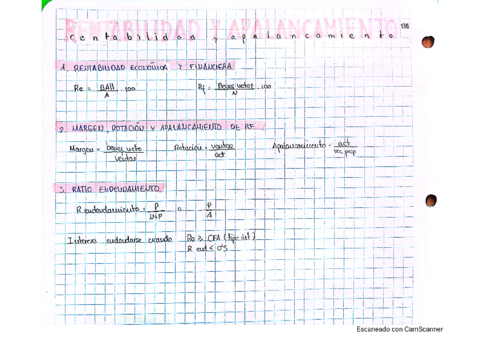 RENTABILIDAD Y APALANCAMIENTO
rentabilidad y apalancamiento
1. RENTABILIDAD ECONÓMICA Y FINANCIERA
Re = BAII / A · 100 Rf = Benef netos / N · 100
2. MARGEN, ROTACIÓN Y APALANCAMIENTO DE RF
Margen = benef neto / ventas Rotación = ventas / act Apalancamiento = act / rec prop
3. RATIO ENDEUDAMIENTO
R endeudamiento = P / N+P o P / A
Interesa endeudarse cuando Re ≥ CFA (tipo int)
R end < 0'5
Escaneado con CamScanner